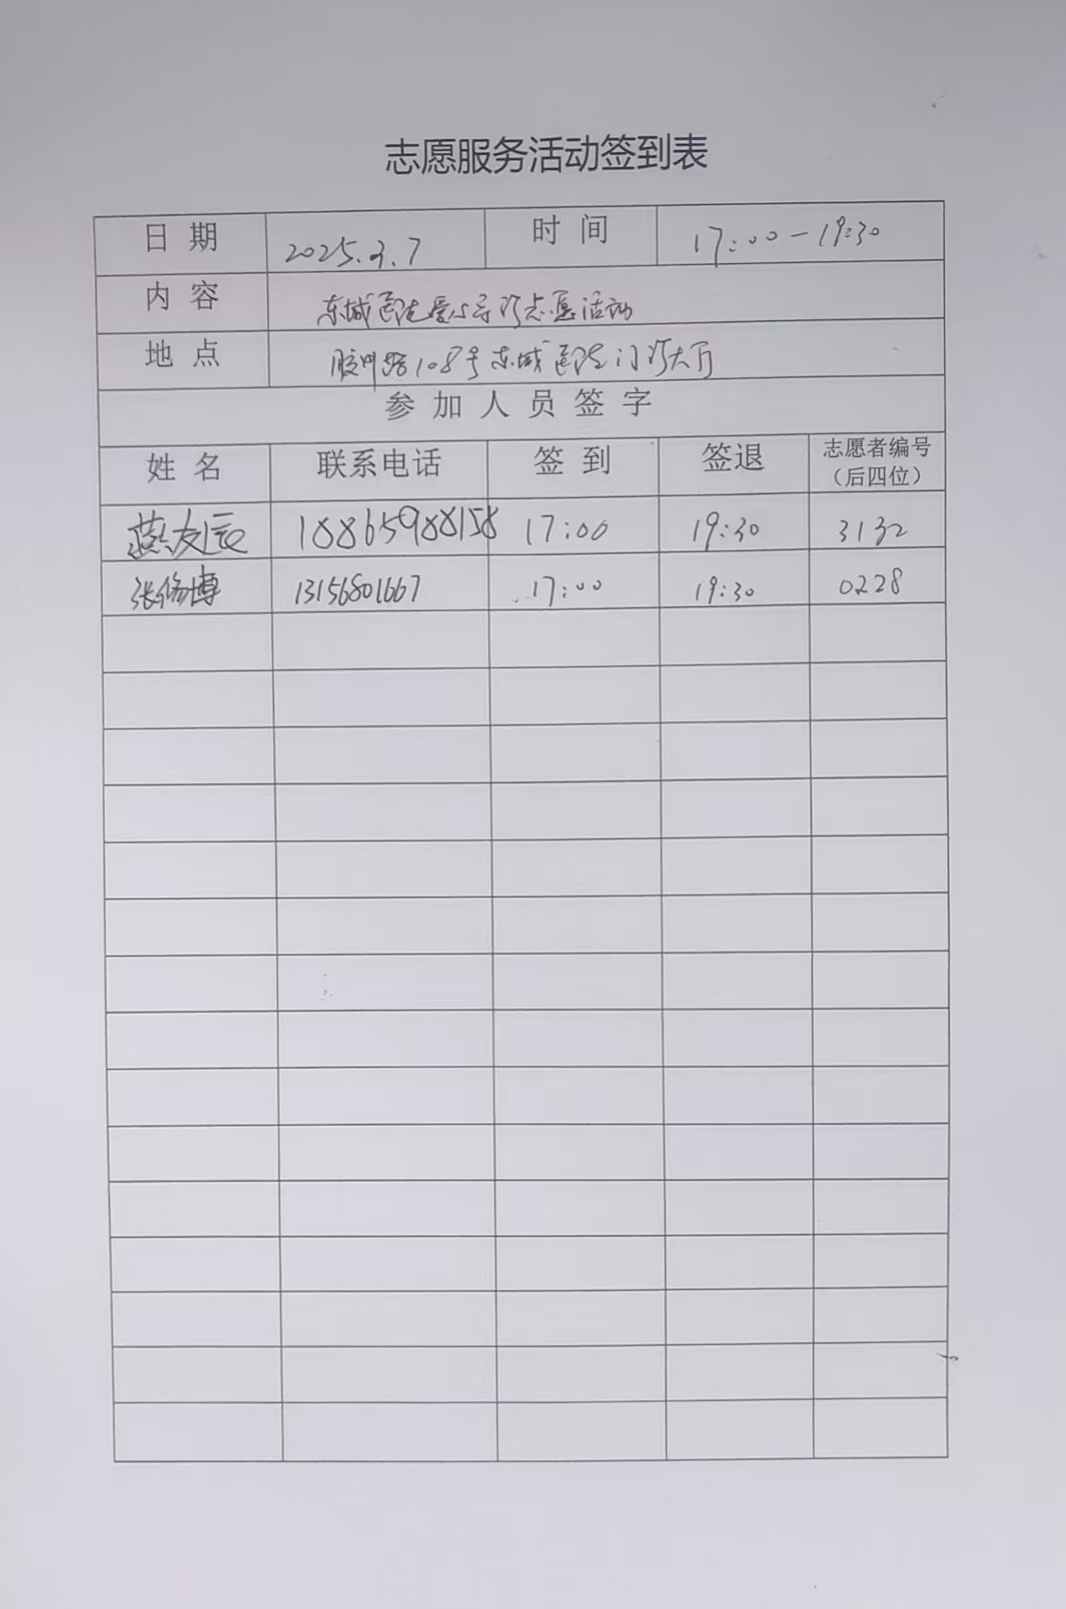 志愿服务活动签到表
日期 2025.3.7 时间 17:00-19:30
内容 东城医院爱心导诊志愿活动
地点 胶州路108号东城医院门诊大厅
参加人员签字
姓名 联系电话 签到 签退 志愿者编号（后四位）
燕友辰 18865988158 17:00 19:30 3132
张修博 13156801667 17:00 19:30 0228